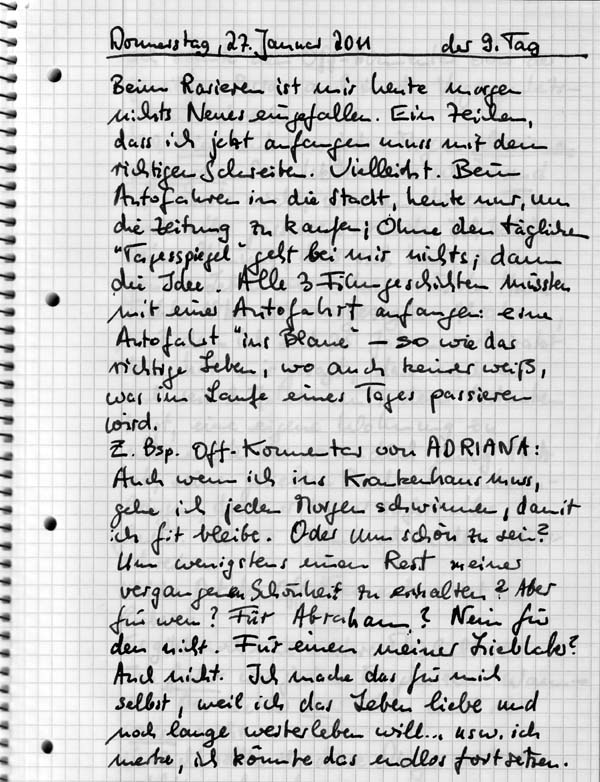 Donnerstag, 27. Januar 2011 der 9. Tag
Beim Rasieren ist mir heute morgen
nichts Neues eingefallen. Ein Zeichen,
dass ich jetzt anfangen muss mit dem
richtigen Schreiben. Vielleicht. Beim
Autofahren in die Stadt, heute nur, um
die Zeitung zu kaufen; Ohne den täglichen
"Tagesspiegel" geht bei mir nichts; dann
die Idee. Alle 3 Filmgeschichten müssten
mit einer Autofahrt anfangen: eine
Autofahrt "ins Blaue" – so wie das
richtige Leben, wo auch keiner weiß,
was im Laufe eines Tages passieren
wird.
Z. Bsp. Off-Kommentar von ADRIANA:
Auch wenn ich ins Krankenhaus muss,
gehe ich jeden Morgen schwimmen, damit
ich fit bleibe. Oder um schön zu sein?
Um wenigstens einen Rest meiner
vergangenen Schönheit zu erhalten? Aber
für wen? Für Abraham? Nein für
den nicht. Für einen meiner Liebhaber?
Auch nicht. Ich mache das für mich
selbst, weil ich das Leben liebe und
noch lange weiterleben will... usw. ich
merke, ich könnte das endlos fortsetzen.